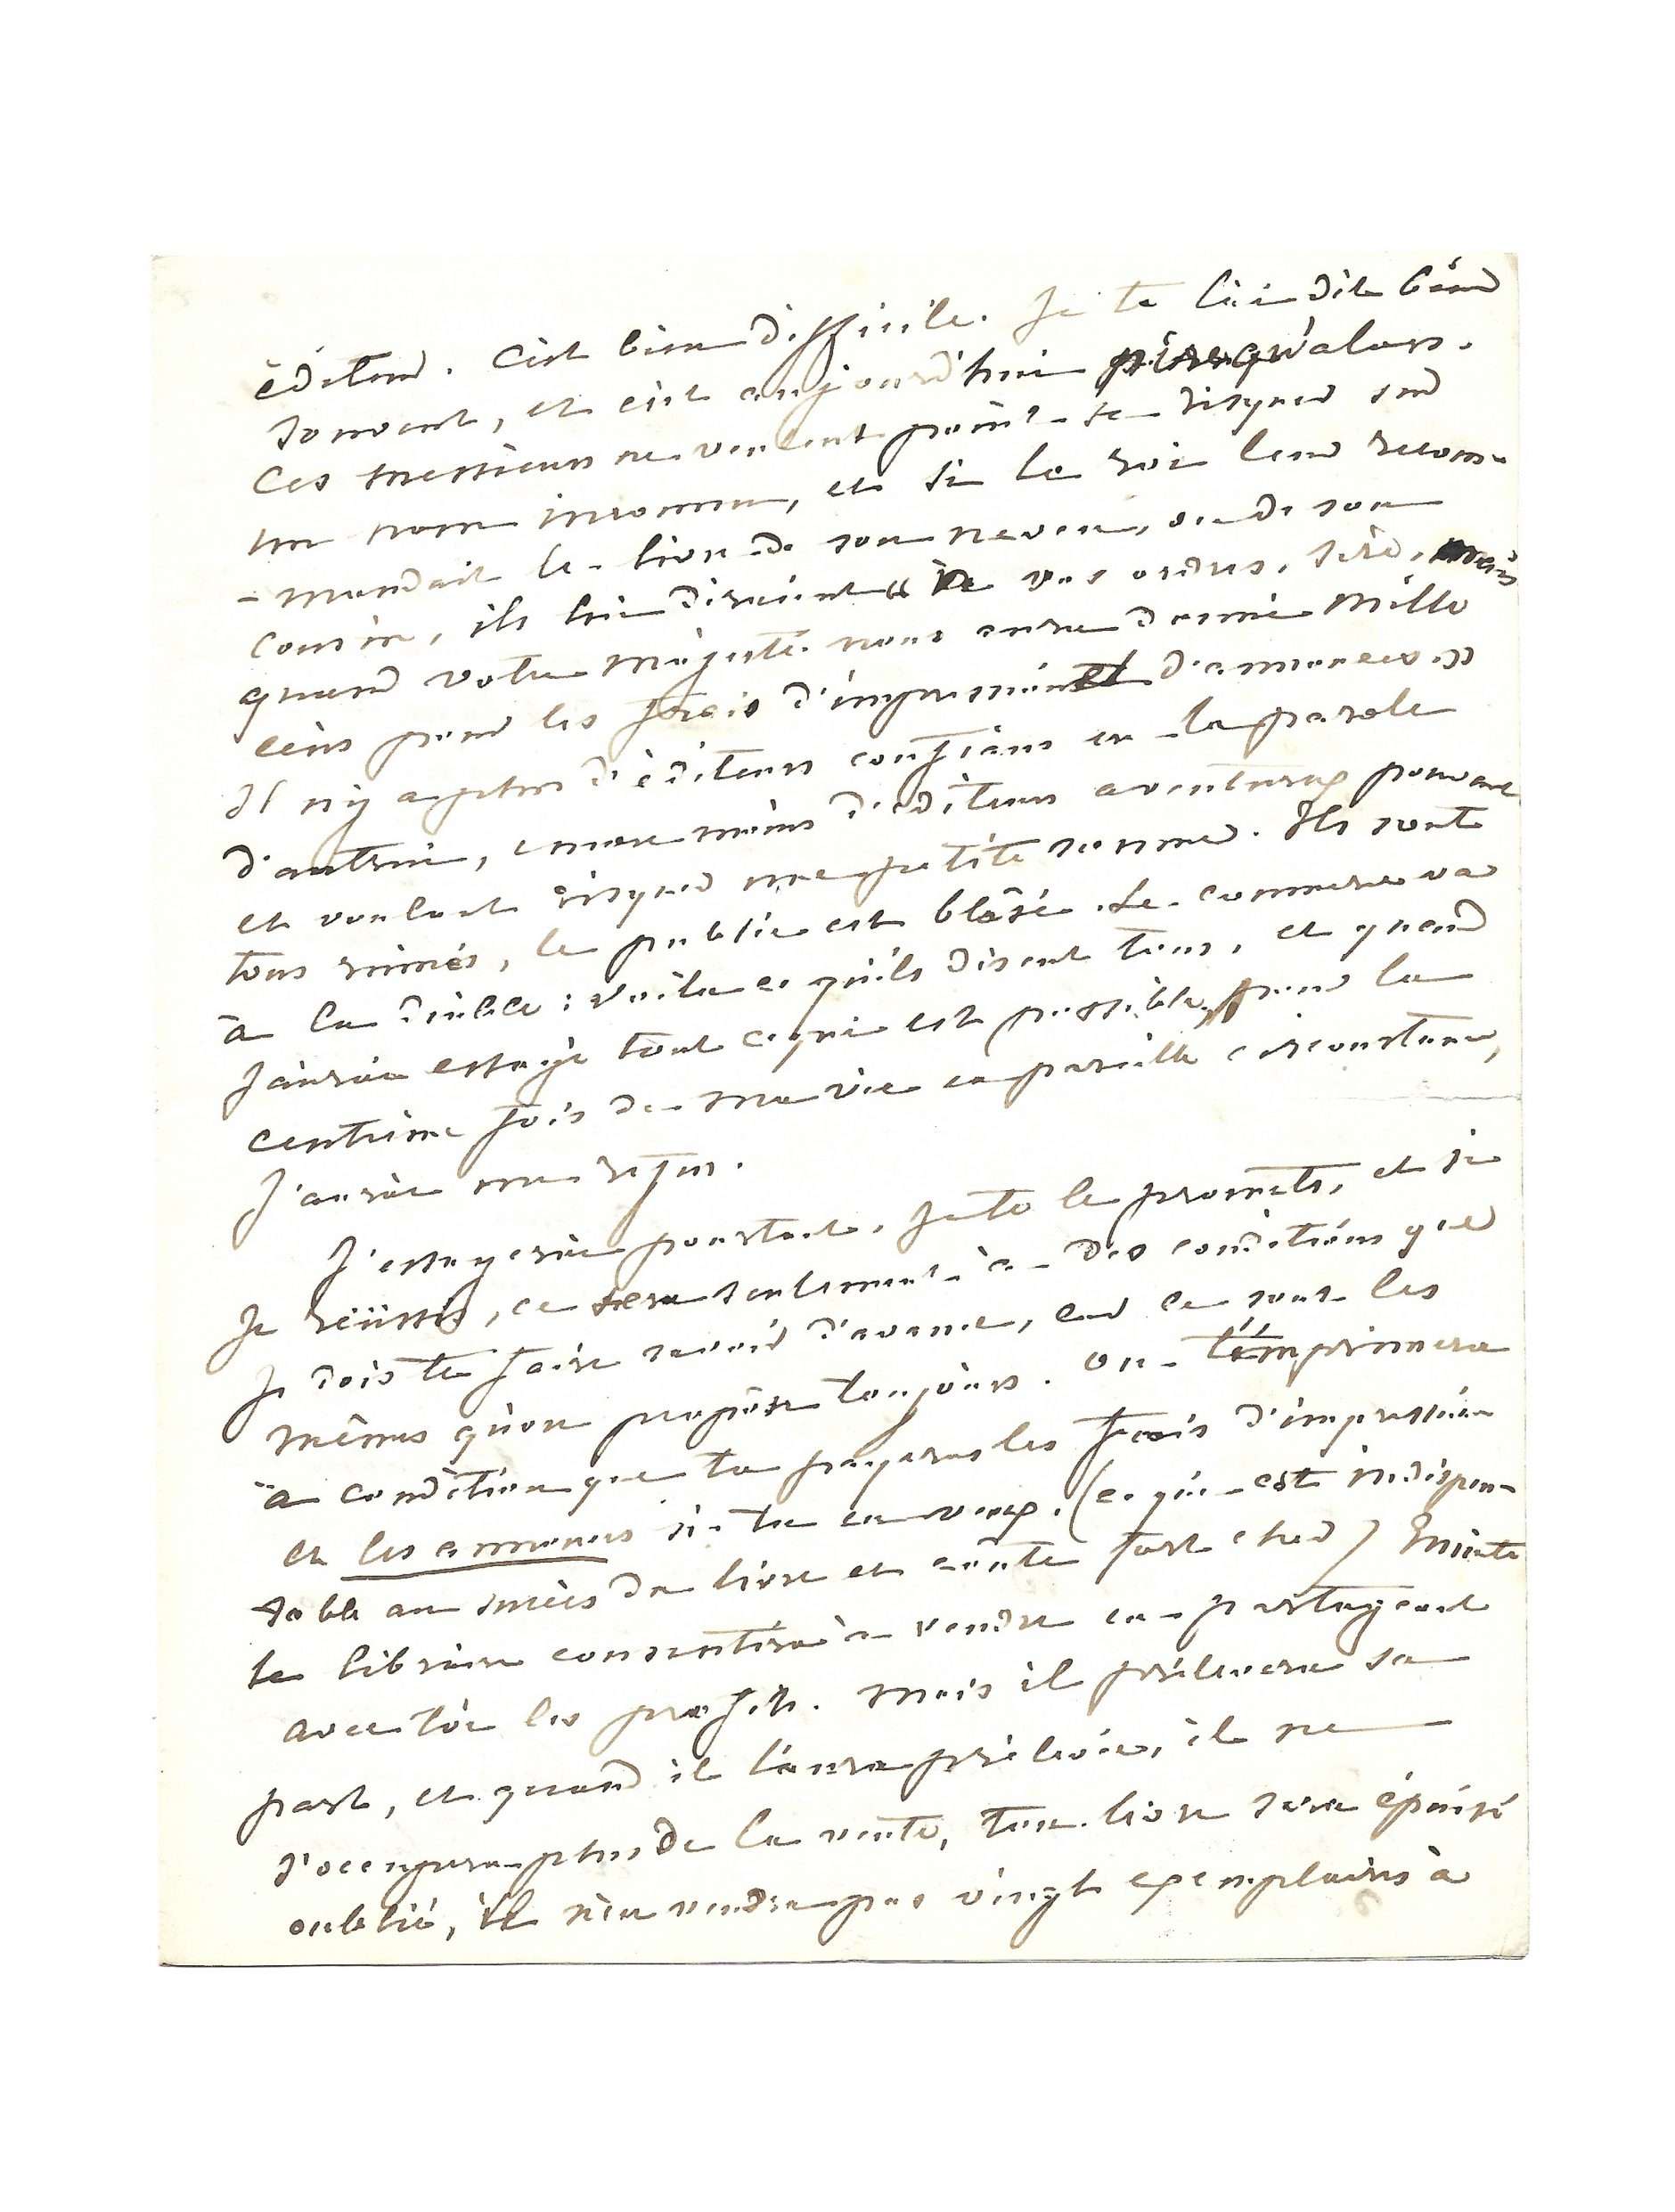 éditeur. C'est bien difficile. Je te l'ai dit bien
souvent, et c'est aujourd'hui pire qu'alors.
Ces messieurs ne veulent point se risquer sur
un nom inconnu, et si le roi leur recom-
-mandait le livre de son neveu, ou de son
cousin, ils lui diraient « à vos ordres, sire, mais
quand votre majesté nous aura donné mille
écus pour les frais d'imprimerie et d'annonces »
Il n'y a plus d'éditeurs confians en la parole
d'autrui, encore moins d'éditeurs aventureux pouvant
et voulant risquer une petite somme. Ils sont
tous ruinés, le public est blâsé. Le commerce va
à la diable : voilà ce qu'ils disent tous, et quand
j'aurai essayé tout ce qui est possible, pour la
centième fois de ma vie en pareille circonstance,
j'aurai un refus.
J'essayerai pourtant. Je te le promets, et si
je réussis, ce sera seulement à des conditions que
je dois te faire savoir d'avance, car ce sont les
mêmes qu'on propose toujours. On t'imprimera
à condition que tu payeras les frais d'impression
et les annonces si tu en veux. (ce qui est indispen-
sable au succès du livre et coûte fort cher) Ensuite
le libraire consentira à vendre en partageant
avec toi les profits. Mais il prélevera sa
part, et quand il l'aura prélevée, il ne
s'occupera plus de la vente, ton livre sera épuisé
oublié, il n'en vendra pas vingt exemplaires à